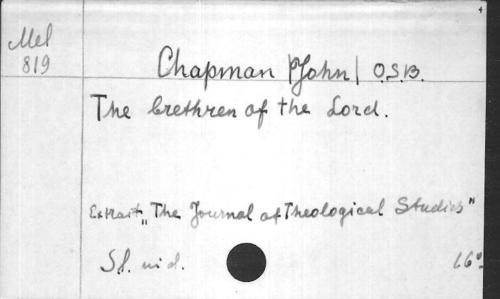 Mel
819
Chapman |John| O.S.B.
The brethren of the Lord.
Extrait „The Journal of Theological Studies"
S.l. ni d.
16°